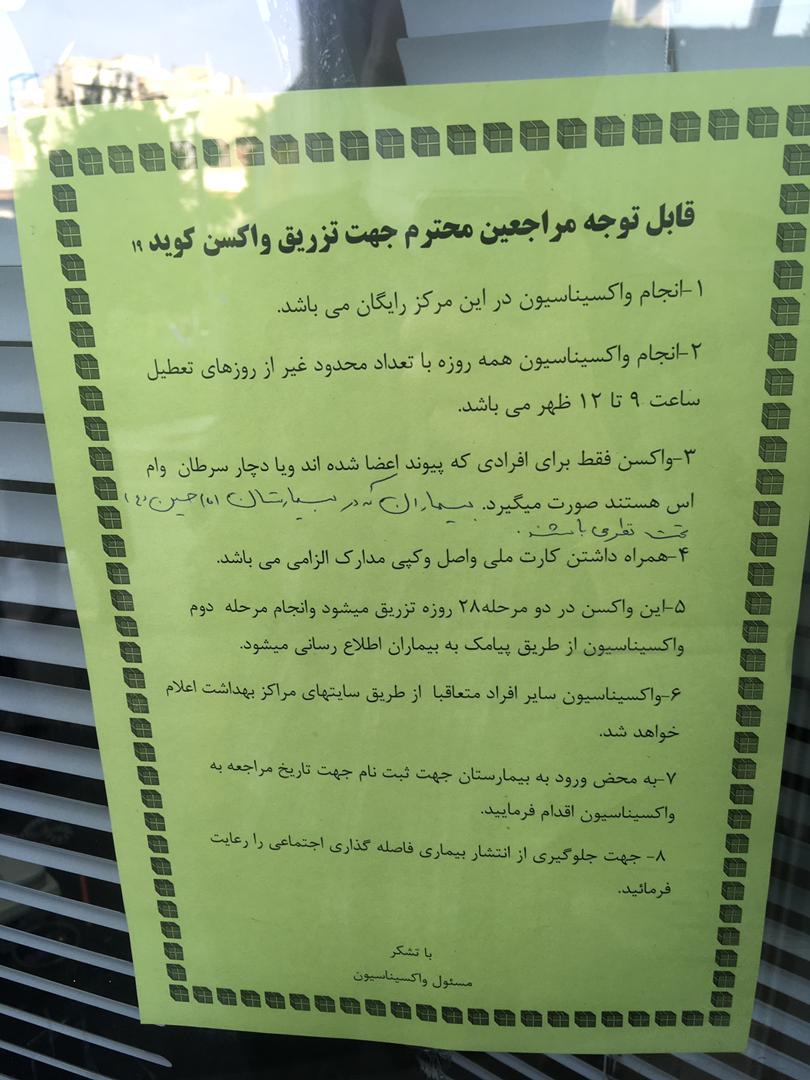 قابل توجه مراجعین محترم جهت تزریق واکسن کوید ۱۹
۱-انجام واکسیناسیون در این مرکز رایگان می باشد.
۲-انجام واکسیناسیون همه روزه با تعداد محدود غیر از روزهای تعطیل
ساعت ۹ تا ۱۲ ظهر می باشد.
۳-واکسن فقط برای افرادی که پیوند اعضا شده اند ویا دچار سرطان وام
اس هستند صورت میگیرد. بیماران که در بیمارستان امام حسین (ع)
تحت نظر می باشند.
۴-همراه داشتن کارت ملی واصل وکپی مدارک الزامی می باشد.
۵-این واکسن در دو مرحله۲۸ روزه تزریق میشود وانجام مرحله دوم
واکسیناسیون از طریق پیامک به بیماران اطلاع رسانی میشود.
۶-واکسیناسیون سایر افراد متعاقبا از طریق سایتهای مراکز بهداشت اعلام
خواهد شد.
۷-به محض ورود به بیمارستان جهت ثبت نام جهت تاریخ مراجعه به
واکسیناسیون اقدام فرمایید.
۸- جهت جلوگیری از انتشار بیماری فاصله گذاری اجتماعی را رعایت
فرمائید.
با تشکر
مسئول واکسیناسیون